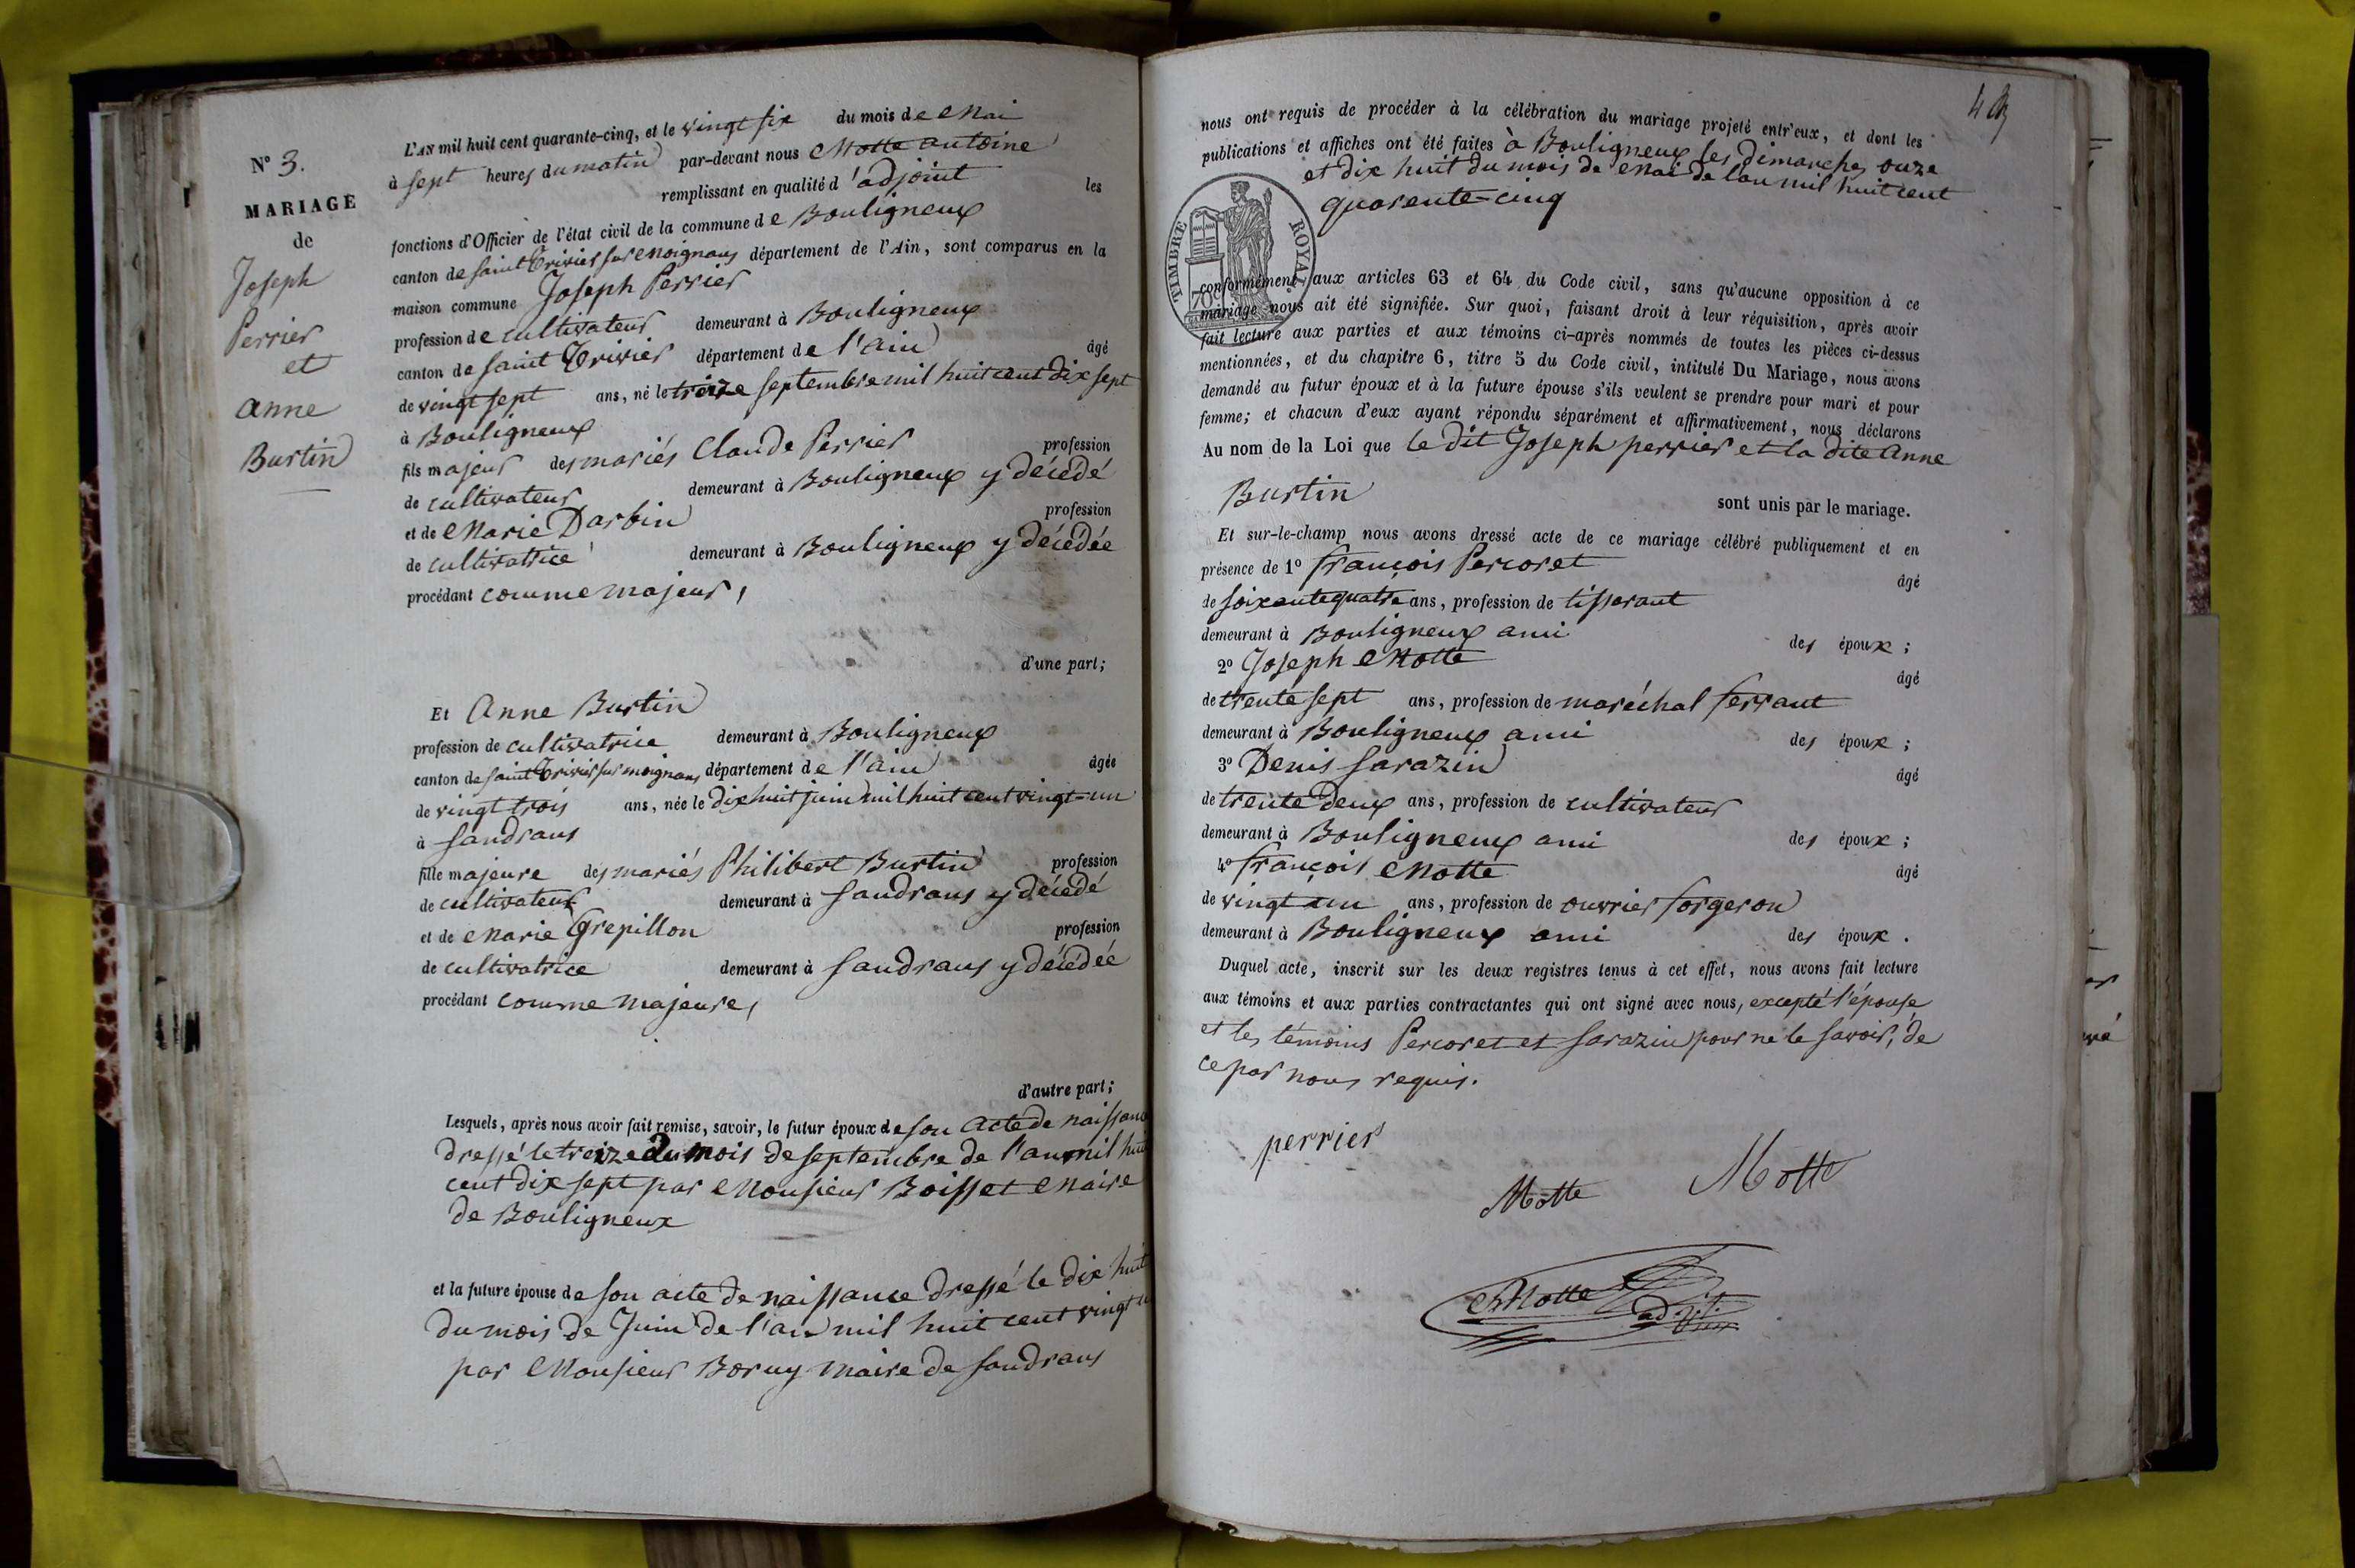 N° 3.
MARIAGE
de
Joseph
Perrier
et
Anne
Burtin
L'AN mil huit cent quarante-cinq, et le vingt six du mois de Mai
à sept heures du matin par-devant nous Motte antoine
remplissant en qualité d'adjoint les
fonctions d'Officier de l'état civil de la commune de Bouligneux
canton de saint Trivier sur Moignans département de l'Ain, sont comparus en la
maison commune Joseph Perrier
profession de cultivateur demeurant à Bouligneux
canton de saint Trivier département de l'ain âgé
de vingt sept ans, né le treize septembre mil huit cent dix sept
à Bouligneux
fils majeur des mariés Claude Perrier profession
de cultivateur demeurant à Bouligneux y décédé
et de Marie Darbin profession
de cultivatrice demeurant à Bouligneux y décédée
procédant comme majeur,
d'une part;
Et Anne Burtin
profession de cultivatrice demeurant à Bouligneux
canton de saint Trivier sur moignans département de l'ain âgée
de vingt trois ans, née le dix huit juin mil huit cent vingt-un
à sandrans
fille majeure des mariés Philibert Burtin profession
de cultivateur demeurant à sandrans y décédé
et de Marie Grepillon profession
de cultivatrice demeurant à sandrans y décédée
procédant comme majeure,
d'autre part;
Lesquels, après nous avoir fait remise, savoir, le futur époux de son acte de naissance
dressé le treize du mois de septembre de l'an mil huit
cent dix sept par Monsieur Boisset Maire
de Bouligneux
et la future épouse de son acte de naissance dressé le dix huit
du mois de Juin de l'an mil huit cent vingt un
par Monsieur Boruy maire de sandrans
nous ont requis de procéder à la célébration du mariage projeté entr'eux, et dont les
publications et affiches ont été faites à Bouligneux les dimanches onze
et dix huit du mois de Mai de l'an mil huit cent
quarente-cinq
TIMBRE ROYAL
conformément aux articles 63 et 64 du Code civil, sans qu'aucune opposition à ce
mariage nous ait été signifiée. Sur quoi, faisant droit à leur réquisition, après avoir
fait lecture aux parties et aux témoins ci-après nommés de toutes les pièces ci-dessus
mentionnées, et du chapitre 6, titre 5 du Code civil, intitulé Du Mariage, nous avons
demandé au futur époux et à la future épouse s'ils veulent se prendre pour mari et pour
femme; et chacun d'eux ayant répondu séparément et affirmativement, nous déclarons
Au nom de la Loi que le dit Joseph perrier et la dite Anne
Burtin sont unis par le mariage.
Et sur-le-champ nous avons dressé acte de ce mariage célébré publiquement et en
présence de 1° françois Percoret âgé
de soixante quatre ans, profession de tisserant
demeurant à Bouligneux ami des époux;
2° Joseph Motte âgé
de trente sept ans, profession de maréchal ferrant
demeurant à Bouligneux ami des époux;
3° Denis Sarazin âgé
de trente deux ans, profession de cultivateur
demeurant à Bouligneux ami des époux;
4° françois Motte âgé
de vingt un ans, profession de ouvrier forgeron
demeurant à Bouligneux ami des époux.
Duquel acte, inscrit sur les deux registres tenus à cet effet, nous avons fait lecture
aux témoins et aux parties contractantes qui ont signé avec nous, excepté l'épouse
et les témoins Percoret et Sarazin pour ne le savoir, de
ce par nous requis.
perrier
Motte Motte
Motte adjt